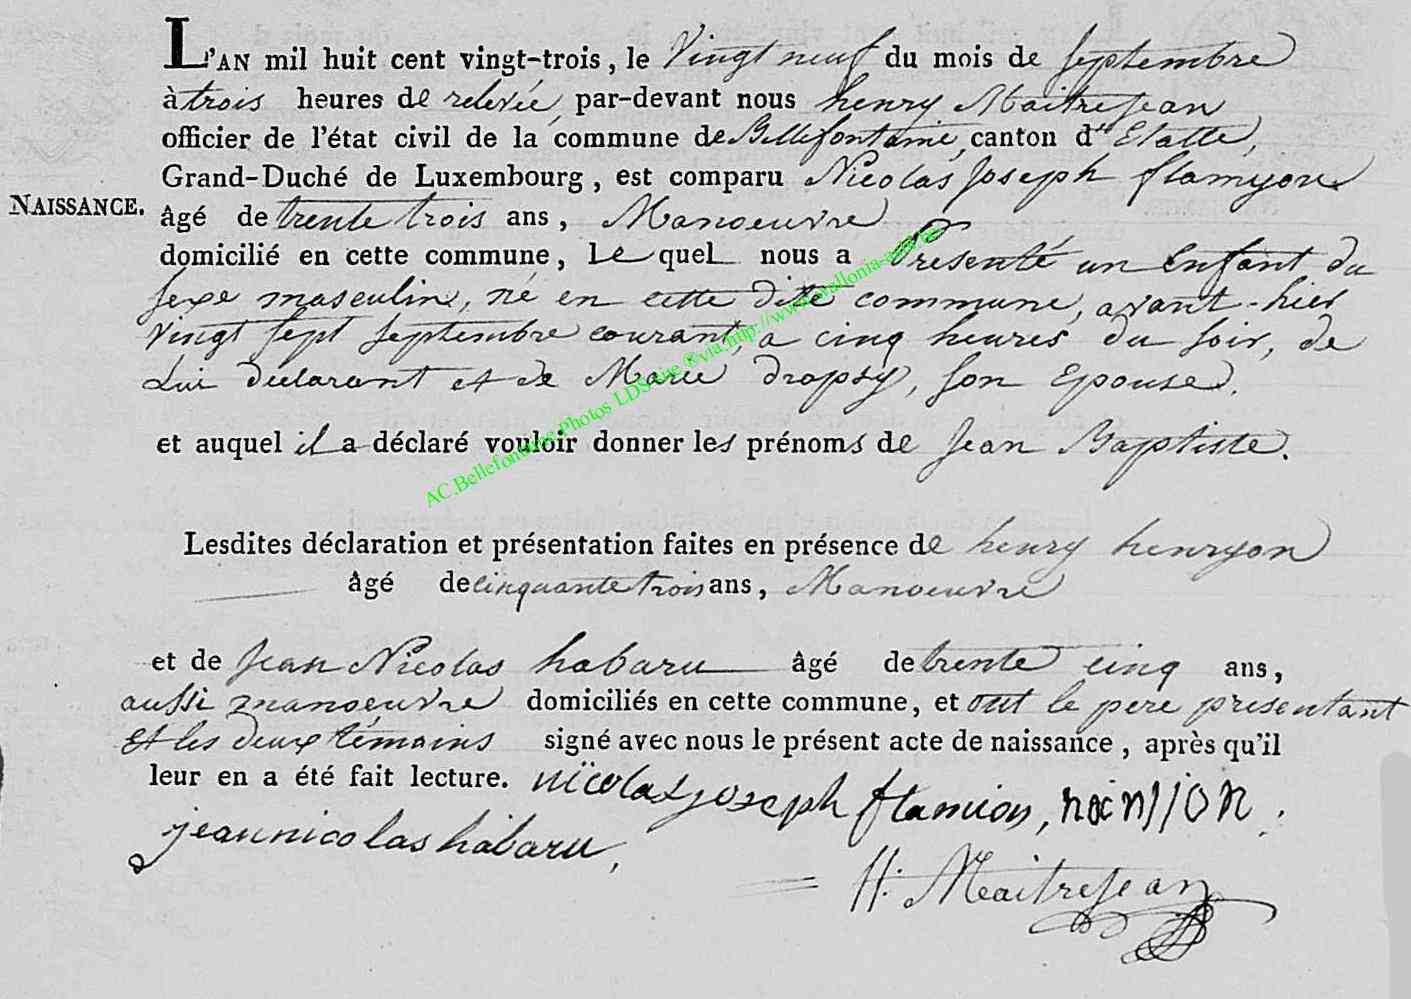 L'AN mil huit cent vingt-trois, le Vingt neuf du mois de Septembre
à trois heures de relevée, par-devant nous henry Maitrejean
officier de l'état civil de la commune de Bellefontaine, canton d'Etalle,
Grand-Duché de Luxembourg, est comparu Nicolas Joseph flamyon
NAISSANCE.
âgé de trente trois ans, Manoeuvre
domicilié en cette commune, Le quel nous a Présenté un Enfant du
sexe masculin, né en cette dite commune, avant-hier
vingt sept septembre courant, a cinq heures du soir, de
Lui déclarant et de Marie dropsy, son Epouse.
et auquel il a déclaré vouloir donner les prénoms de Jean Baptiste.
AC.Bellefontaine Photos LDS via http://www.wallonia-
Lesdites déclaration et présentation faites en présence de henry henryon
âgé de cinquante trois ans, Manoeuvre
et de Jean Nicolas habaru âgé de trente cinq ans,
aussi manoeuvre domiciliés en cette commune, et ont le pere présentant
Et les deux témoins signé avec nous le présent acte de naissance, après qu'il
leur en a été fait lecture. nicolas joseph flamion,
jean nicolas habaru,
H. Maitrejean